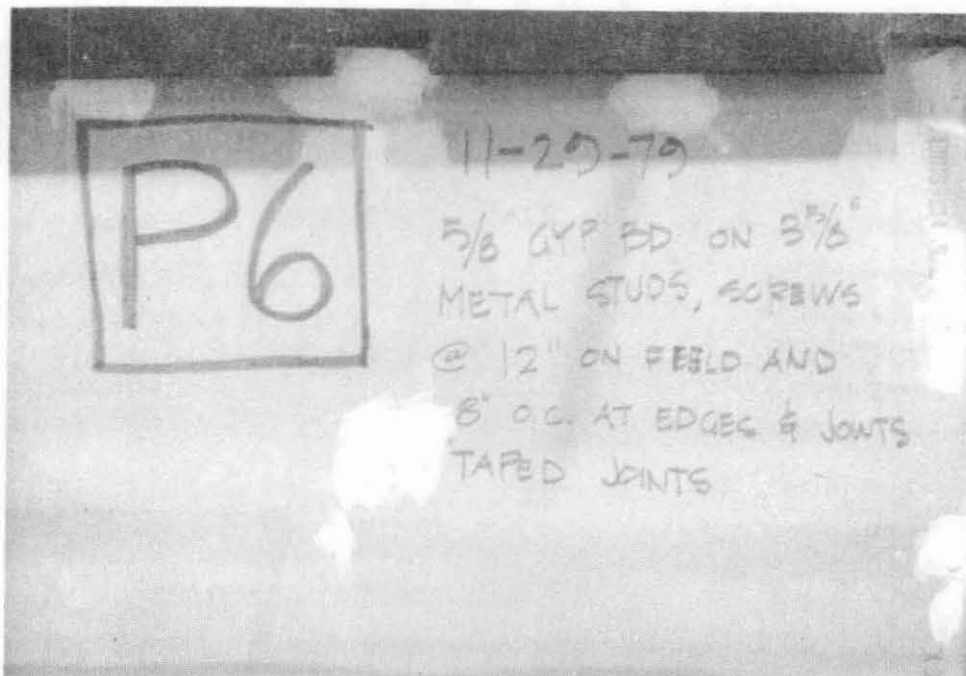 P6
11-29-79
5/8" GYP BD ON 3 5/8"
METAL STUDS, SCREWS
@ 12" ON FEELD AND
8" O.C. AT EDGES & JOINTS
TAPED JOINTS